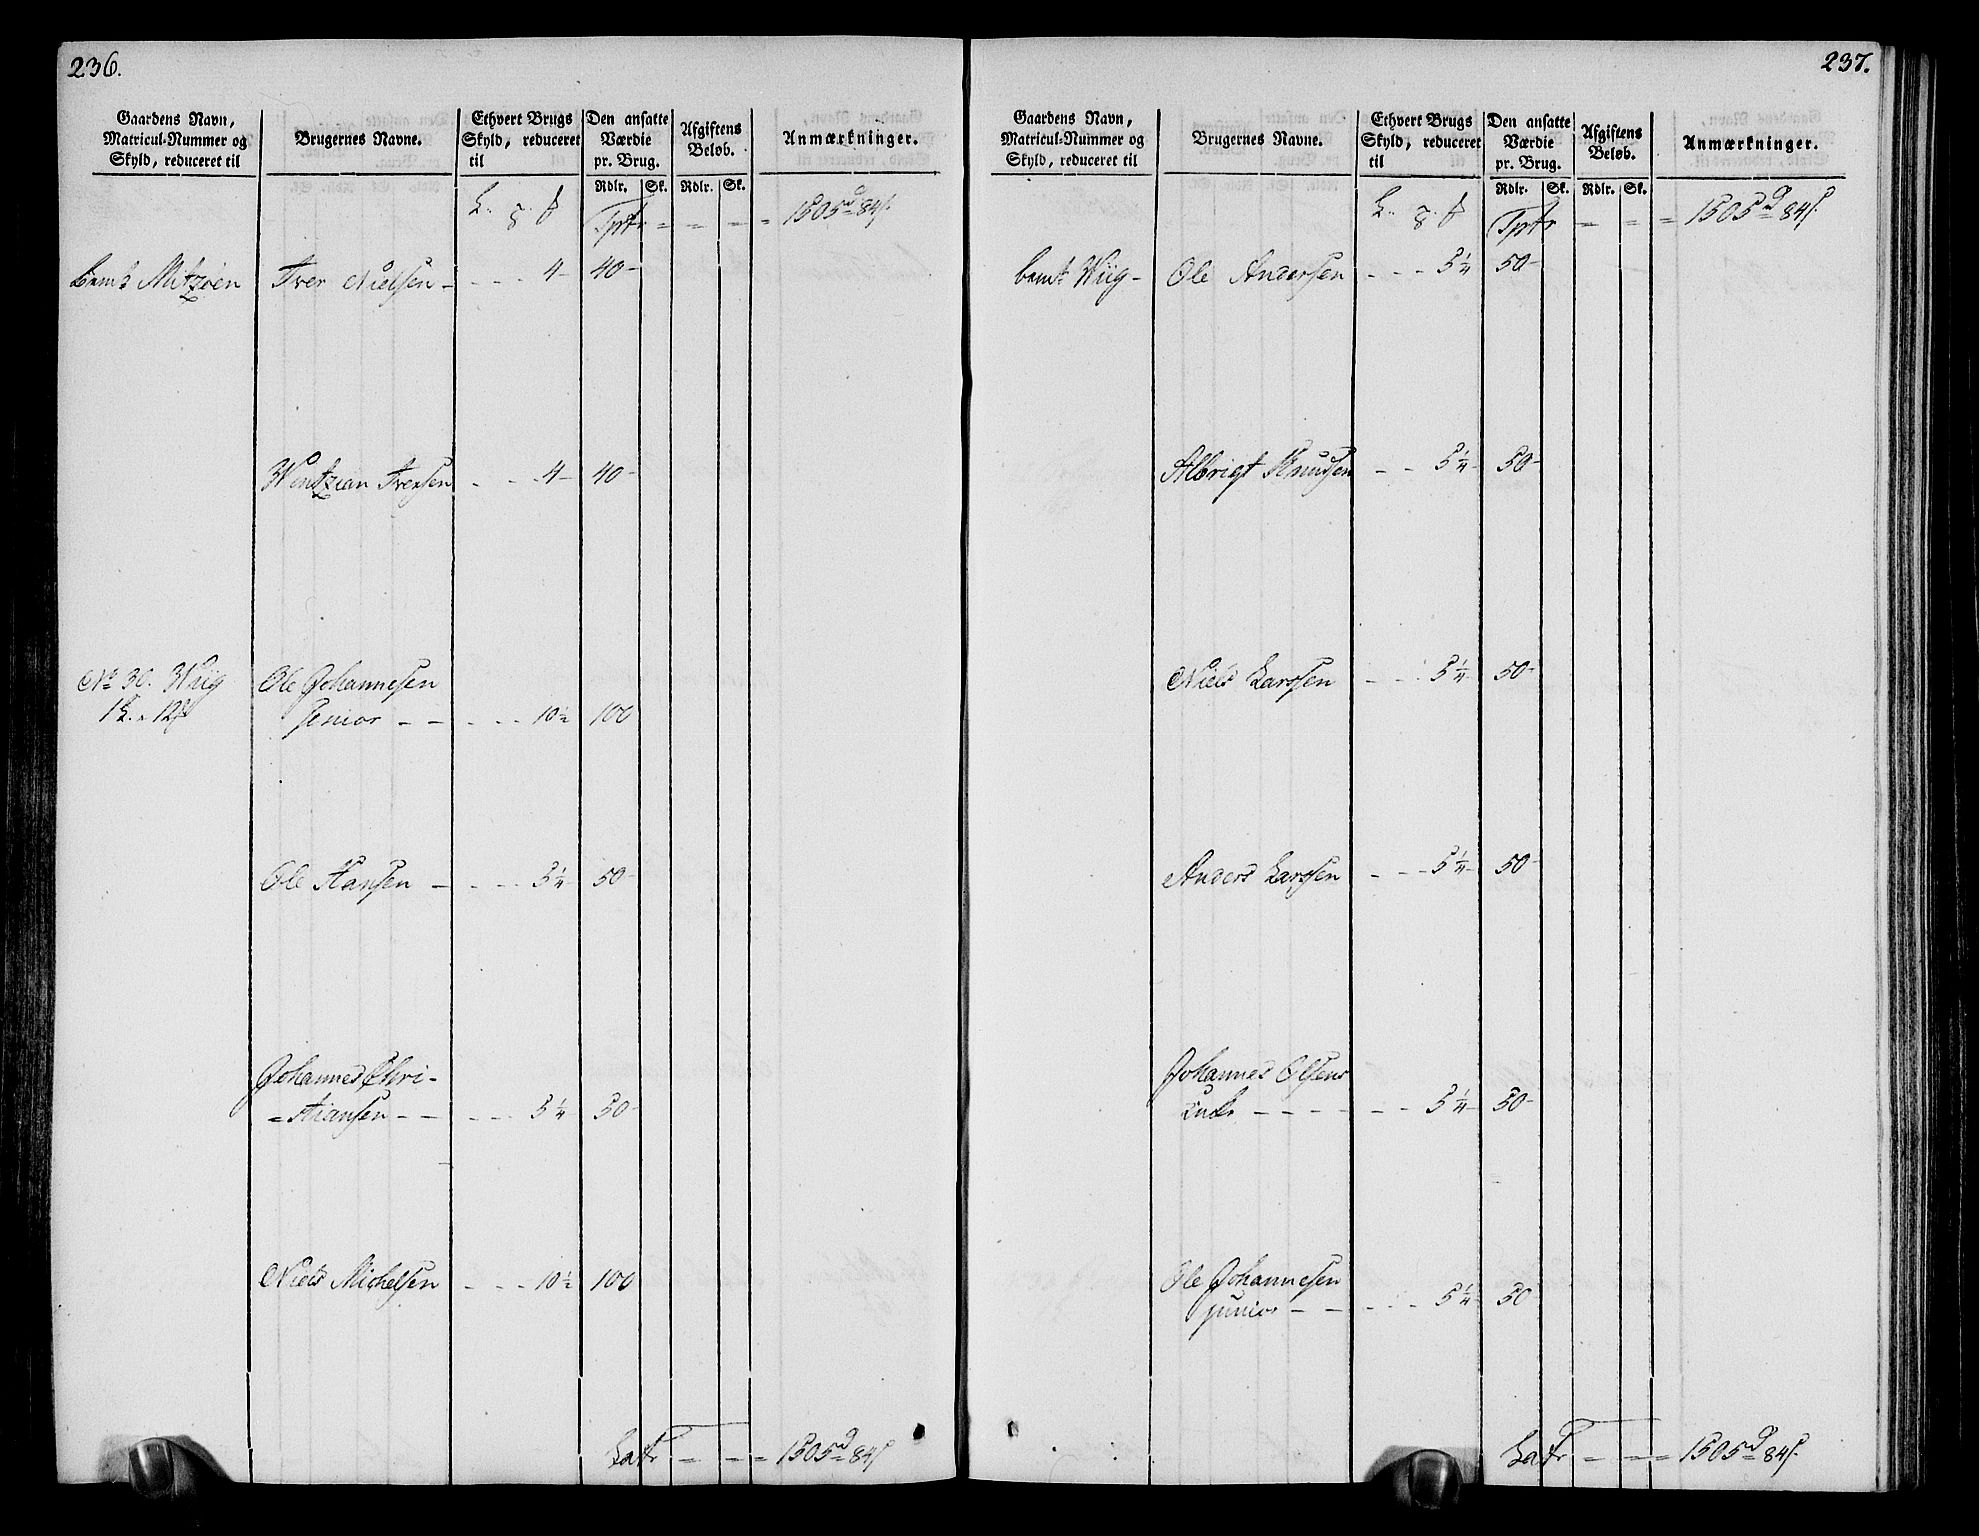 236.
Gaardens Navn, Matricul-Nummer og Skyld, reduceret til
Brugernes Navne.
Ethvert Brugs Skyld, reduceret til
Den ansatte Værdie pr. Brug.
Afgiftens Beløb.
Anmærkninger.
Rdlr. Sk. Rdlr. Sk.
Tptr = - - = 1505d 84s.
Iver Nielsen - - - - 4 - 40 -
Wentzian Iversen - - 4 - 40 -
No 30. Wiig Ole Johannesen
senior - - - - - 10½ 100
Ole Hansen - - - - 5¼ 50 -
Johannes Chri-
=stiansen - - - - - 5¼ 50 -
Niels Michelsen - - - 10½ 100
Latr = - = 1505d 84s
237.
Gaardens Navn, Matricul-Nummer og Skyld, reduceret til
Brugernes Navne.
Ethvert Brugs Skyld, reduceret til
Den ansatte Værdie pr. Brug.
Afgiftens Beløb.
Anmærkninger.
Rdlr. Sk. Rdlr. Sk.
Tptr = = = 1505d 84s.
bemt Wiig - Ole Andersen - - - 5¼ 50 -
Albrigt Knudsen - - 5¼ 50 -
Niels Larssen - - - 5¼ 50 -
Anders Larssen - - - 5¼ 50 -
Johannes Olsens
Enke - - - - - - 5¼ 50 -
Ole Johannesen
junior - - - - - 5¼ 50
Latr = - = 1505d 84s.